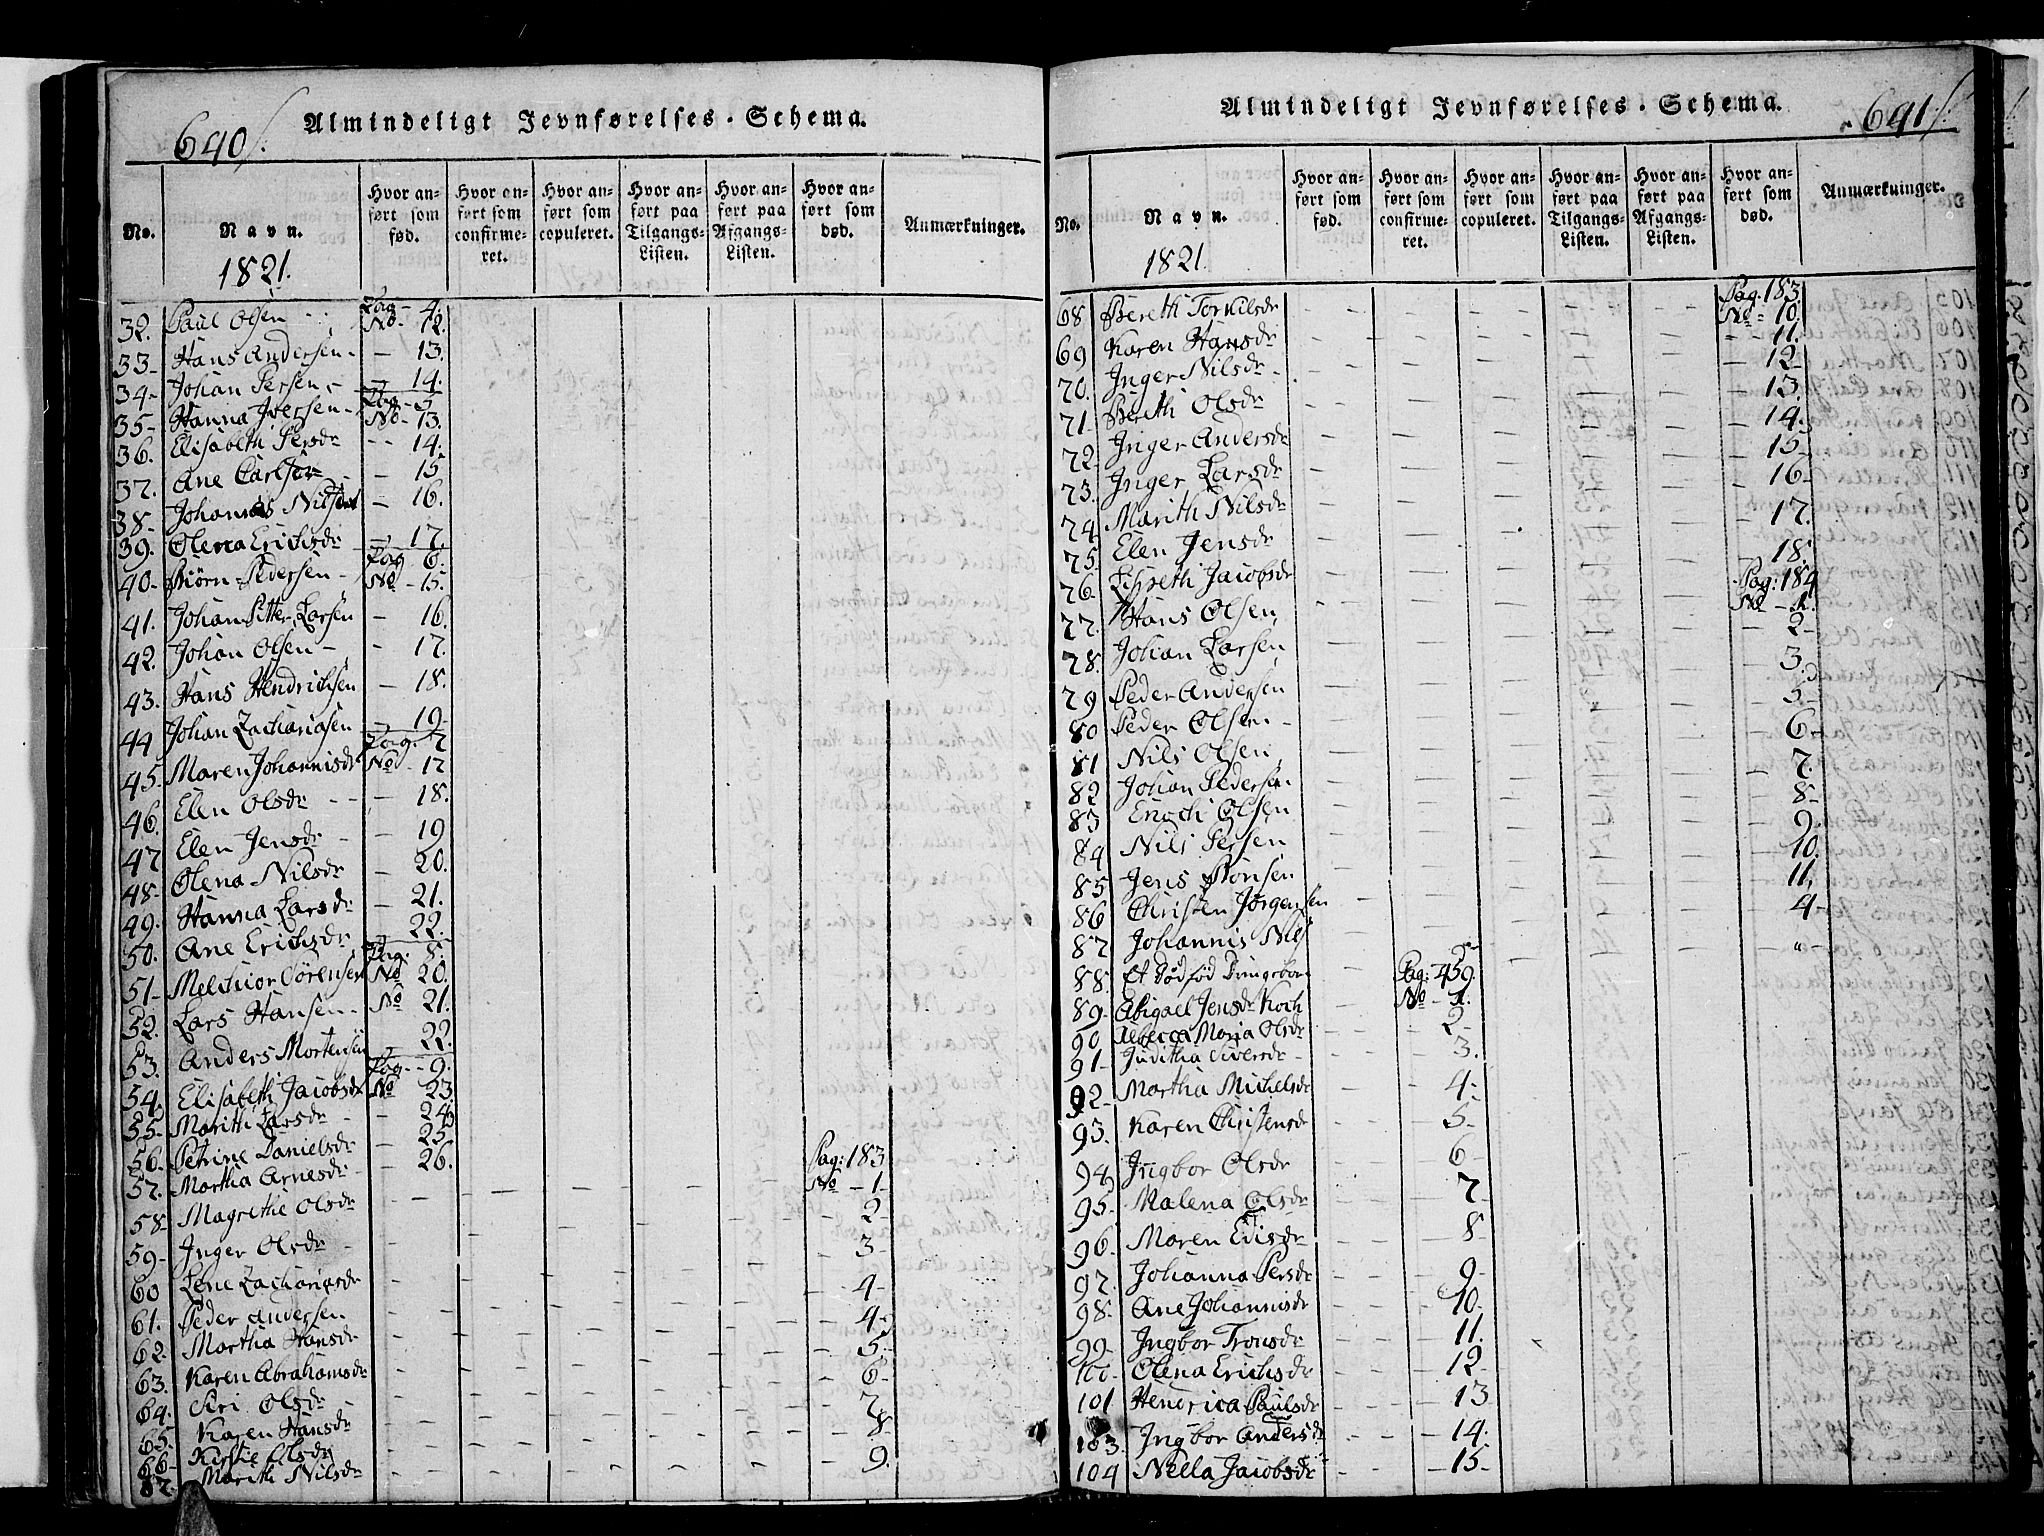 640
Almindeligt Jevnførelses-Schema.
No.
Navn.
Hvor anført som fød.
Hvor anført som confirmeret.
Hvor anført som copuleret.
Hvor anført paa Tilgangs-Listen.
Hvor anført paa Afgangs-Listen.
Hvor anført som død.
Anmærkninger.
1821.
Pag - 4.
32. Paul Olsen No - 12.
33 - Hans Andersen - 13.
34 - Johan Persen - 14.
Pag - 5
35 - Hanna Iversen - No - 13.
36. Elisabeth Persdr - 14.
37. Ane Carlsdr - 15
38 - Johannes Nilsen - 16.
39. Olena Erichsdr - 17.
Pag 6.
40 - Biørn Pedersen - No - 15.
41. Johan Petter Larsen - 16.
42. Johan Olsen - 17.
43. Hans Hendrichsen - 18.
44 Johan Zachariasen - 19 -
Pag. 7
45 - Maren Johannisdr No - 17
46. Elen Olsdr - 18.
47 Elen Jensdr - 19
48 - Olena Nilsdr - 20.
49. Hanna Larsdr - 21.
50. Ane Erichsdr - 22.
Pag. 8.
51 - Melchior Sørensen No 20.
52. Lars Hansen - No 21.
53. Anders Mortensen 22.
Pag - 9.
54. Elisabeth Jacobsdr No 23.
55 - Marith Larsdr - 24
56. Petrine Danielsdr - 25.
57. Martha Arnesdr - 26.
Pag: 183
58 - Magrethe Olsdr No - 1 -
59 - Inger Olsdr - 2 -
60 Lene Zachariasdr - 3 -
61. Peder Andersen - 4 -
62. Martha Hansdr - 4 -
63. Karen Abrahamsdr - 5.
64. Siri Olsdr - 6 -
65. Karen Hansdr - 7
66 - Kirstie Olsdr - 8.
67. Marith Nilsdr - 9.
641
Almindeligt Jevnførelses-Schema.
No.
Navn.
Hvor anført som fød.
Hvor anført som confirmeret.
Hvor anført som copuleret.
Hvor anført paa Tilgangs-Listen.
Hvor anført paa Afgangs-Listen.
Hvor anført som død.
Anmærkninger.
1821.
Pag. 183.
68 Bereth Torkilsdr No - 10.
69 Karen Hansdr - 11.
70. Inger Nilsdr - 12 -
71 - Bereth Olsdr - 13.
72 - Inger Andersdr - 14.
73. Inger Larsdr - 15 -
74. Marith Nilsdr - 16 -
75. Elen Jensdr - 17.
76. Lisbeth Jacobsdr - 18.
Pag: 184
77. Hans Olsen No - 1.
78. Johan Larsen - 2 -
79 Peder Andersen - 3.
80 Peder Olsen - 5 -
81 Nils Olsen - 6 -
82 Johan Pedersen - 7.
83 Enoch Olsen - 8 -
84 Nils Persen - 9.
85 Jens - 10.
86 Christen Jørgensen - 11.
87 Johannis Nils - 4 -
88. Et Dødfød Drengebarn - " -
Pag: 459.
89 - Abigael Jensdr Koch No - 1.
90 Rebecca Maria Olsdr 2 -
91 - Juditha Siversdr - 3.
92 - Martha Michelsdr - 4 -
93. Karen Christensdr - 5 -
94. Ingbor Olsdr - 6 -
95 - Malena Olsdr - 7 -
96. Maren Elisdr - 8 -
97. Johanna Persdr - 9 -
98. Ane Johannisdr - 10.
99. Ingbor Tronsdr - 11.
100. Olena Erichsdr - 12 -
101 Henrica Paulsdr - 13
103. Ingbor Andersdr - 14.
104 Nella Jacobsdr - 15 -